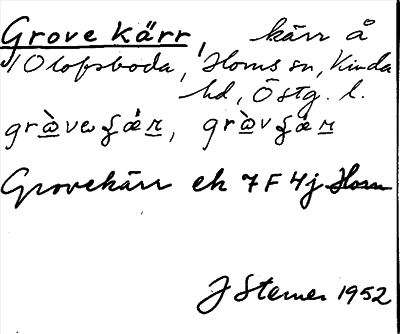 Grove kärr, kärr å
Olofsboda, Horns sn, Kinda
hd, Östg. l.
Grovekärr ek 7 F 4 j Horn
J Sterner 1952